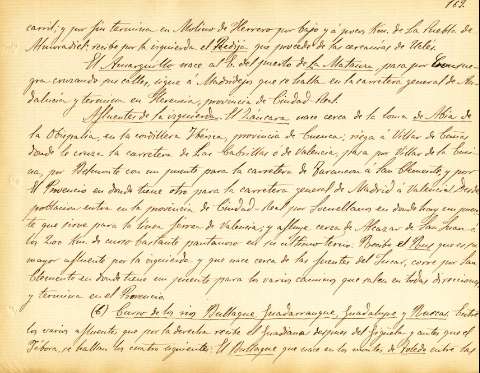 182.
carril; y por fin termina en Molino de Herrero por bajo y á pocos Km. de la Puebla de
recibe por la izquierda el Redija que procede de las cercanias de Ucles.
El Amarguillo nace al E. del puerto de La Matanza, pasa por Consue-
gra cruzando sus calles, sigue á Madridejos que se halla en la carretera general de An-
dalucia y termina en Herencia, provincia de Ciudad Real.
Afluentes de la izquierda. El Záncara nace cerca de la loma de Abia de
la Obispalia, en la cordillera Ibérica, provincia de Cuenca, riega á Villar de Cañas
donde le cruza la carretera de Las Cabrillas ó de Valencia, pasa por Villar de la Enci-
na, por Belmonte con un puente para la carretera de Tarancon á San Clemente, y por
El Provencio en donde tiene otro para la carretera general de Madrid á Valencia. Desde
poblacion entra en la provincia de Ciudad Real por Socuellamos en donde hay un puen-
te que sirve para la linea ferrea de Valencia, y afluye cerca de Alcazar de San Juan á
los 200 Km. de curso bastante pantanoso en su ultimo tercio. Recibe el Rus que es su
mayor afluente por la izquierda y que nace cerca de las fuentes del Jucar, corre por San
Clemente en donde tiene un puente para los varios caminos que salen en todas direcciones
y termina en el Provencio
(6) Curso de los rios Bullaque, Guadarranque, Guadalupe y Ruecas. Entre
los varios afluentes que por la derecha recibe el Guadiana despues del Gigüela y antes que el
Gévora, se hallan los cuatro siguientes: El Bullaque que nace en los montes de Toledo entre las